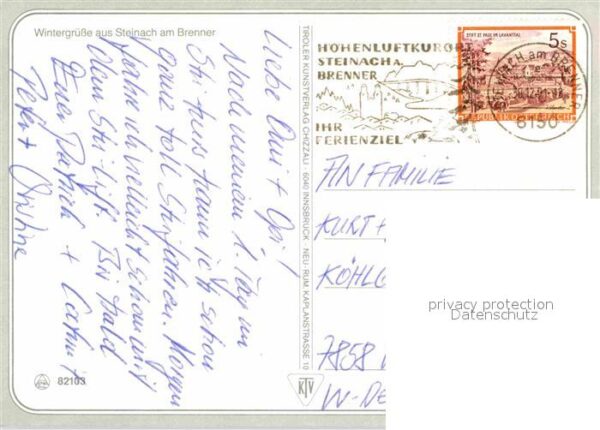 Wintergrüße aus Steinach am Brenner
Liebe Omi + Opi!
Nach meinem 1. Tag im
Skikurs kann ich schon
ganz toll Skifahren. Morgen
fahre ich vielleicht schon mit
dem Ski-Lift. Bis bald
Euer Patrick +
Peter +
82103
TIROLER KUNSTVERLAG CHIZZALI · 6040 INNSBRUCK · NEU-RUM, KAPLANSTRASSE 10
KTV
HÖHENLUFTKURORT
STEINACH A.
BRENNER
IHR
FERIENZIEL
STIFT ST. PAUL IM LAVANTTAL
5s
REPUBLIK ÖSTERREICH
am BRENNER
6150
AN FAMILIE
KURT +
KÖHL
7858
W-DE
privacy protection
Datenschutz